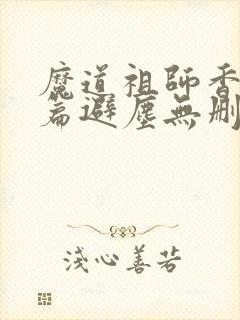 魔道祖師香
篇避塵無刪
淺心善若